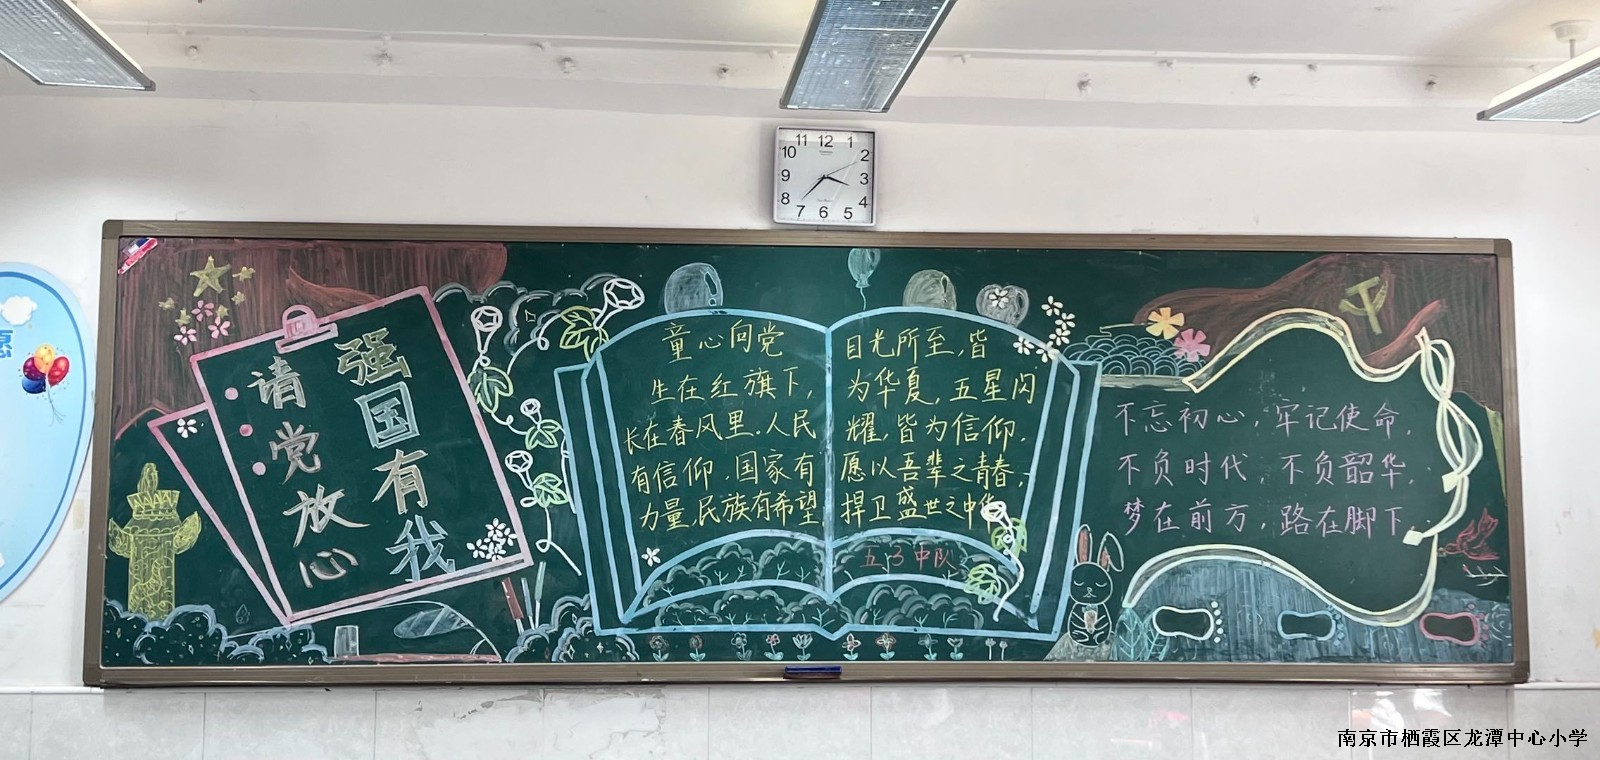 愿
11 12 1
10 2
9 3
8 4
7 6 5
请党放心
强国有我
童心向党
生在红旗下,
长在春风里.人民
有信仰,国家有
力量,民族有希望
目光所至,皆
为华夏,五星闪
耀,皆为信仰.
愿以吾辈之青春,
捍卫盛世之中华
五3中队
不忘初心,牢记使命,
不负时代,不负韶华,
梦在前方,路在脚下.
南京市栖霞区龙潭中心小学